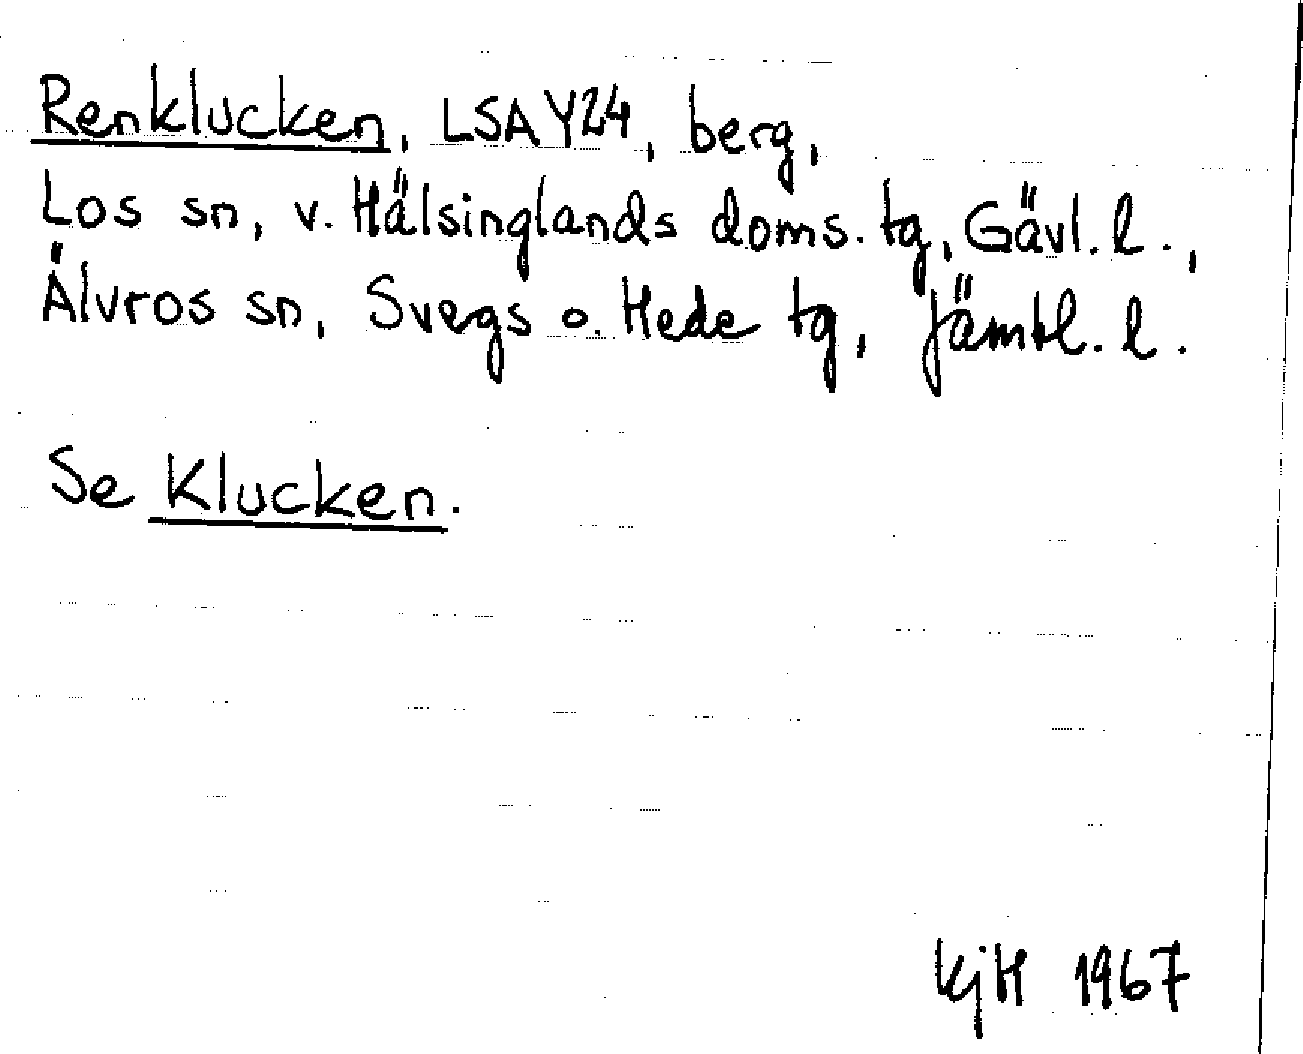 Renklucken, LSA Y24, berg,
Los sn, v. Hälsinglands doms. tg, Gävl. l.,
Älvros sn, Svegs o. Hede tg, Jämtl. l.
Se Klucken.
KjH 1967